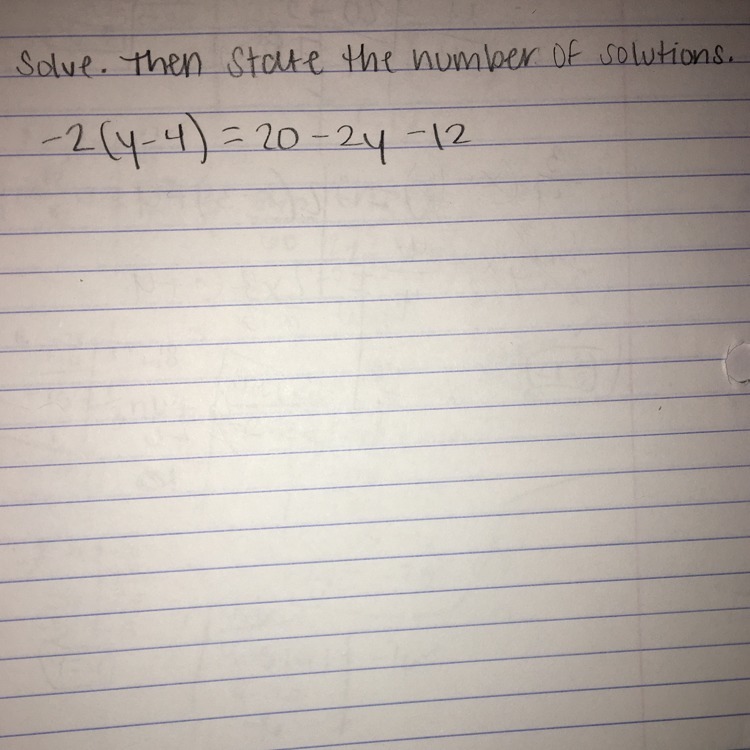 Solve. Then State the number of solutions.
-2(y-4) = 20 - 2y - 12